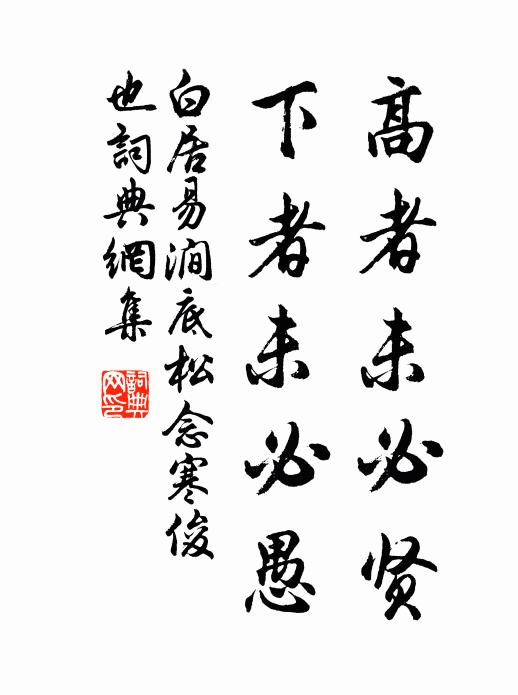 高者未必贤
下者未必愚
白居易澗底松念寒俊
也詞典網集
詞典
网印